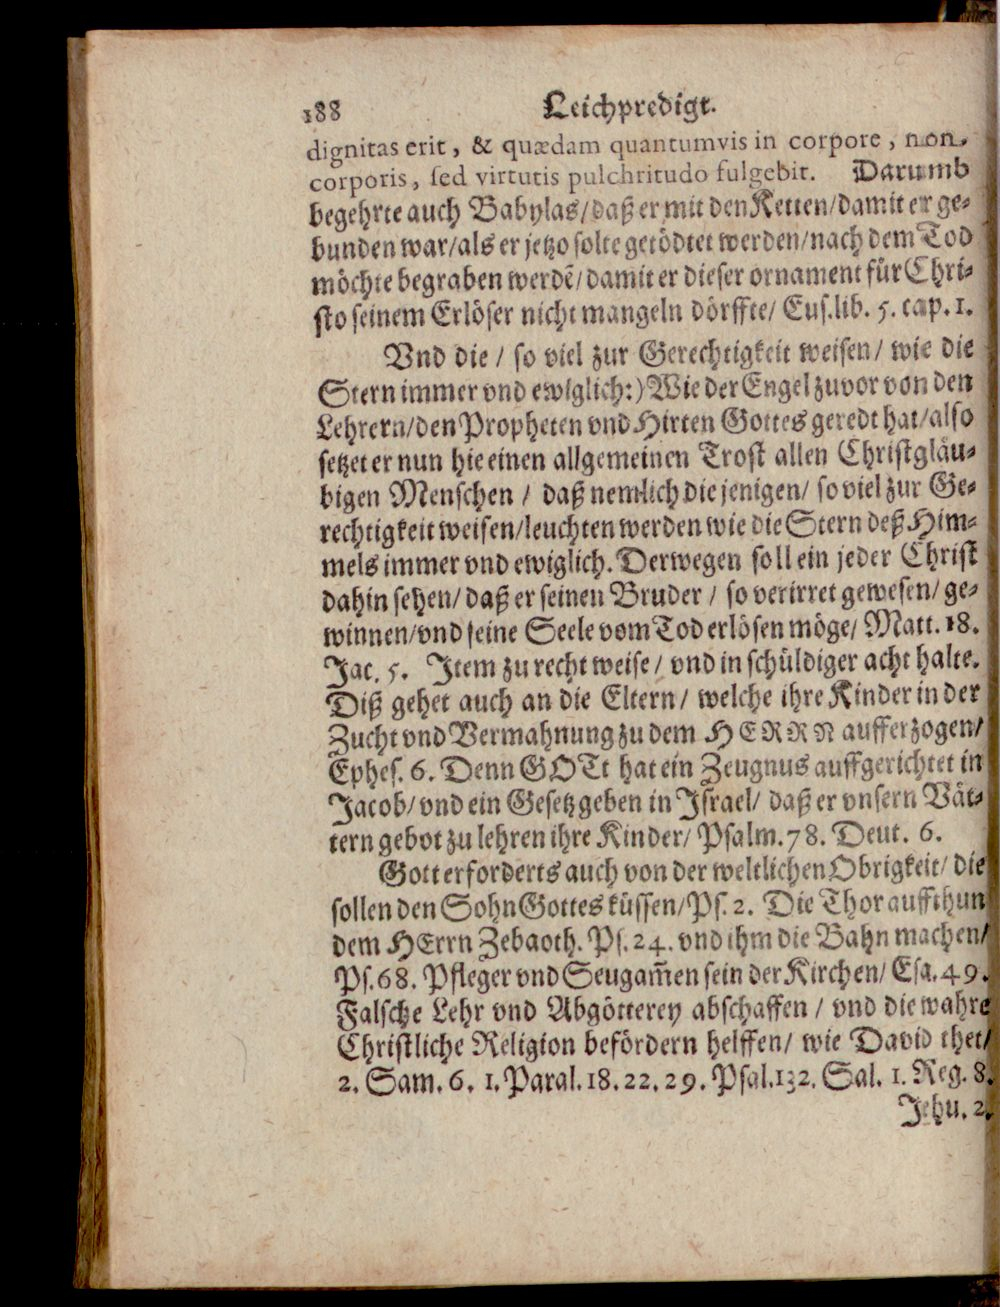 188 Leichpredigt.
dignitas erit, & quædam quantumvis in corpore, non
corporis, sed virtutis pulchritudo fulgebit. Darumb
begehrte auch Babylas/daß er mit den Ketten/damit er ge-
bunden war/als er jetzo solte getödtet werden/nach dem Tod
möchte begraben werdē/damit er dieser ornament für Chri-
sto seinem Erlöser nicht mangeln dörffte/ Eus.lib. 5. cap. 1.
Vnd die / so viel zur Gerechtigkeit weisen/ wie die
Stern immer vnd ewiglich:) Wie der Engel zuvor von den
Lehrern/den Propheten vnd Hirten Gottes geredt hat/also
setzet er nun hie einen allgemeinen Trost allen Christgläu-
bigen Menschen / daß nemlich die jenigen/ so viel zur Ge-
rechtigkeit weisen/leuchten werden wie die Stern deß Him-
mels immer vnd ewiglich. Derwegen soll ein jeder Christ
dahin sehen/ daß er seinen Bruder / so verirret gewesen/ ge-
winnen/vnd seine Seele vom Tod erlösen möge/ Matt. 18.
Jac. 5. Item zu recht weise/ vnd in schüldiger acht halte.
Diß gehet auch an die Eltern/ welche ihre Kinder in der
Zucht vnd Vermahnung zu dem HERRN aufferzogen/
Ephes. 6. Denn GOTt hat ein Zeugnus auffgerichtet in
Jacob/ vnd ein Gesetz geben in Israel/ daß er vnsern Vät-
tern gebot zu lehren ihre Kinder/ Psalm. 78. Deut. 6.
Gott erforderts auch von der weltlichen Obrigkeit/ die
sollen den Sohn Gottes küssen/Ps. 2. Die Thor auffthun
dem HErrn Zebaoth. Ps. 24. vnd ihm die Bahn machen/
Ps. 68. Pfleger vnd Seugam̃en sein der Kirchen/ Esa. 49.
Falsche Lehr vnd Abgötterey abschaffen / vnd die wahre
Christliche Religion befördern helffen/ wie David thet/
2. Sam. 6. 1. Paral. 18. 22. 29. Psal. 132. Sal. 1. Reg. 8.
Jehu. 2.